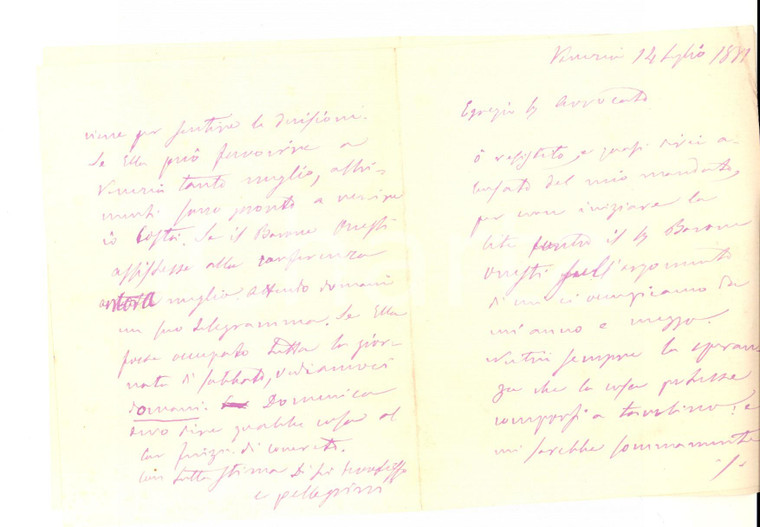 Venezia 14 Luglio 1881
Egregio Sig Avvocato
ò resistito, e quasi direi a-
busato del mio mandato,
per non iniziare la
lite contro il Sig Barone
Onesti sull'argomento
di cui ci occupiamo da
un'anno e mezzo.
Nutrii sempre la speran-
za che la cosa potesse
comporsi a tavolino: e
mi sarebbe sommamente
./.
viene per sentire le decisioni.
Se Ella può favorire a
Venezia tanto meglio, altri-
menti sono pronto a venire
io costà. Se il Barone Onesti
assistesse alla conferenza
ancora meglio. Attendo domani
un suo telegramma. Se Ella
fosse occupato tutta la gior-
nata di sabbato, vediamoci
domani. Domenica
devo dire qualche cosa al
di concreto.
Con tutta stima Di Lei
C Pellegrini